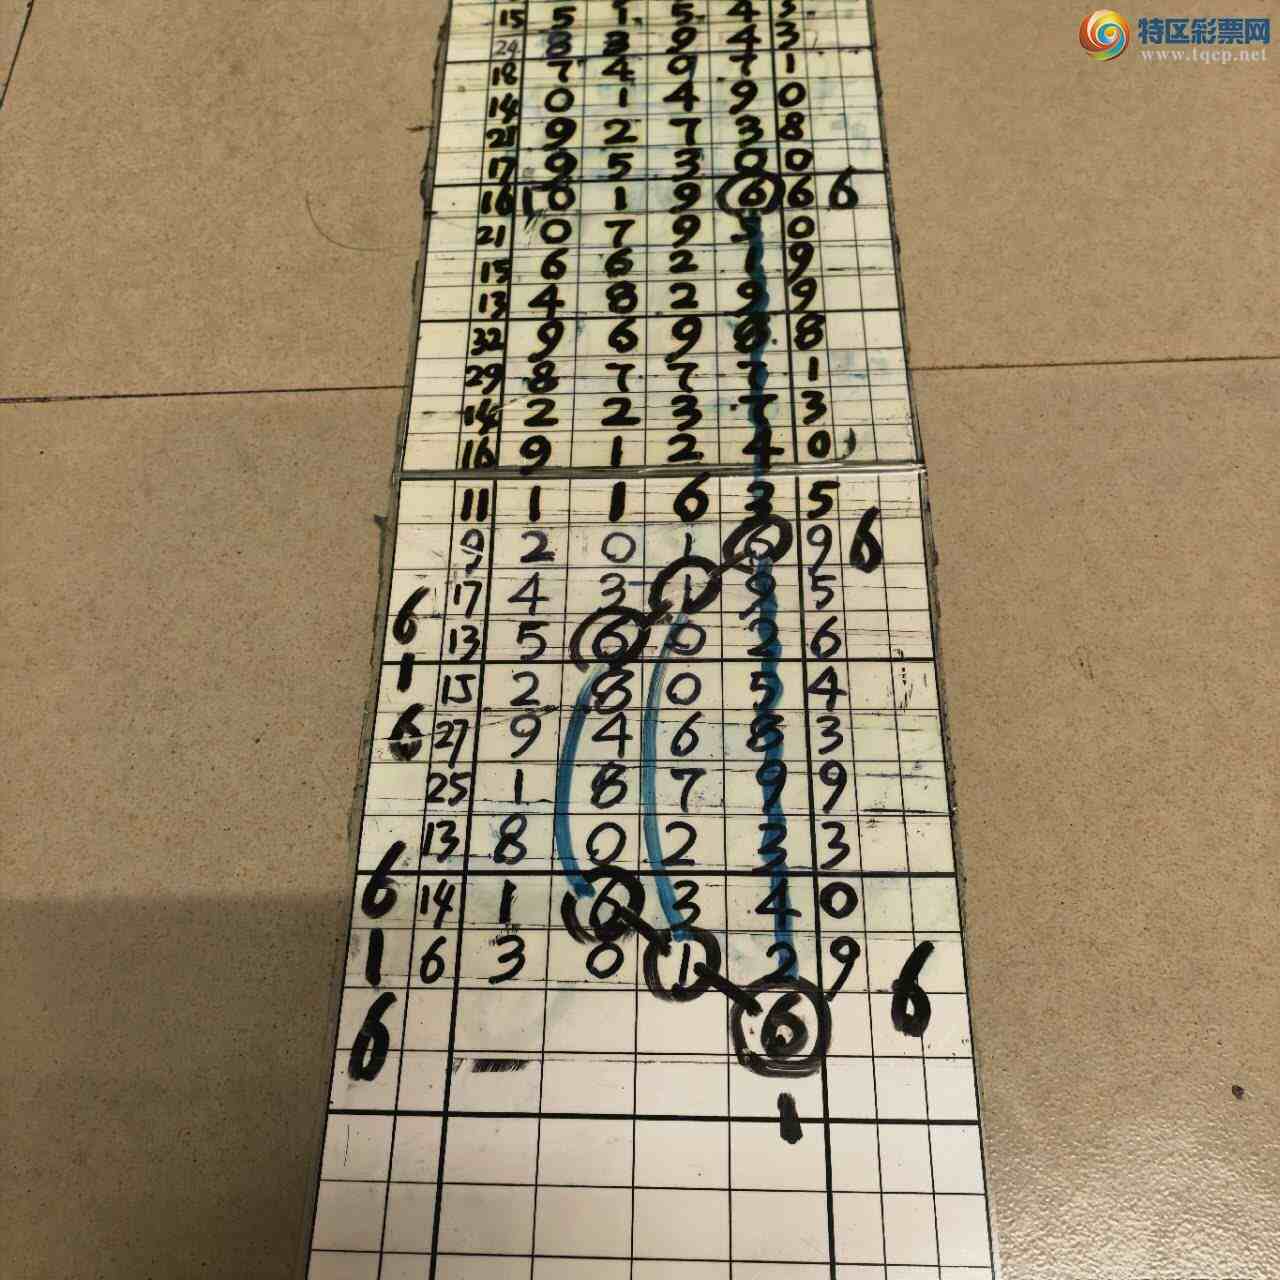 特区彩票网
www.tqcp.net
15 5 1 5 4 3
24 8 8 9 4 3
18 7 4 0 7 1
14 0 1 4 9 0
21 9 2 7 3 8
17 9 5 3 0 0
16 0 1 9 6 6 6
21 0 7 9 5 0
15 6 6 2 1 9
13 4 8 2 9 9
32 9 6 9 8 8
29 8 7 7 7 1
14 2 2 3 7 3
16 9 1 2 4 0
11 1 1 6 3 5
9 2 0 1 6 9 6
17 4 3 1 9 5
6 13 5 6 0 2 6
1 15 2 8 0 5 4
6 27 9 4 6 8 3
25 1 8 7 9 9
13 8 0 2 3 3
6 14 1 6 3 4 0
1 6 3 0 1 2 9 6
6 6
1